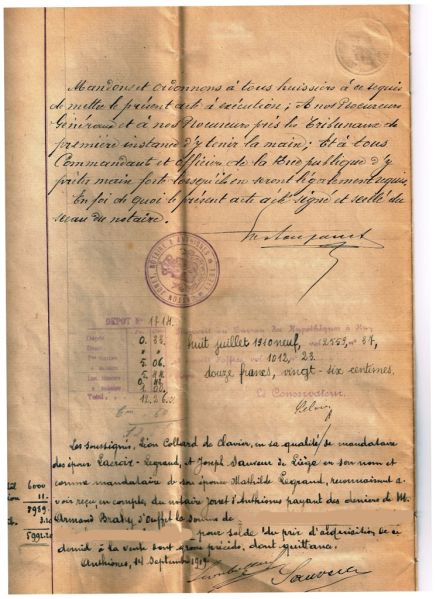 Mandons et ordonnons à tous huissiers à ce requis
de mettre le présent acte à exécution; A nos Procureurs
Généraux et à nos Procureurs près les Tribunaux de
première instance d'y tenir la main; Et à tous
Commandants et Officiers de la Force publique d'y
prêter main forte lorsqu'ils en seront légalement requis.
En foi de quoi le présent acte a été signé et scellé du
sceau du notaire.
DEPOT N° 1714.
huit juillet 1910 neuf, vol 2553, n° 87,
vol 1012, 23.
douze francs, vingt-six centimes.
Le Conservateur.
5.06
Total 12.26
Les soussignés, Léon Collard de Clavier, en sa qualité de mandataire
des époux Lacroix-Legrand, et Joseph Sauveur de Liège en son nom et
comme mandataire de son épouse Mathilde Legrand, reconnaissent a-
voir reçu, en comptes, du notaire Joret d'Anthisnes payant des deniers de M.
Armand Braky d'Ouffet la somme de
pour solde du prix d'acquisition de ce
dernier à la vente dont grosse précède, dont quittance.
Anthisnes, 14 Septembre 1919
Sauveur
6000
11.
5989.
3.20